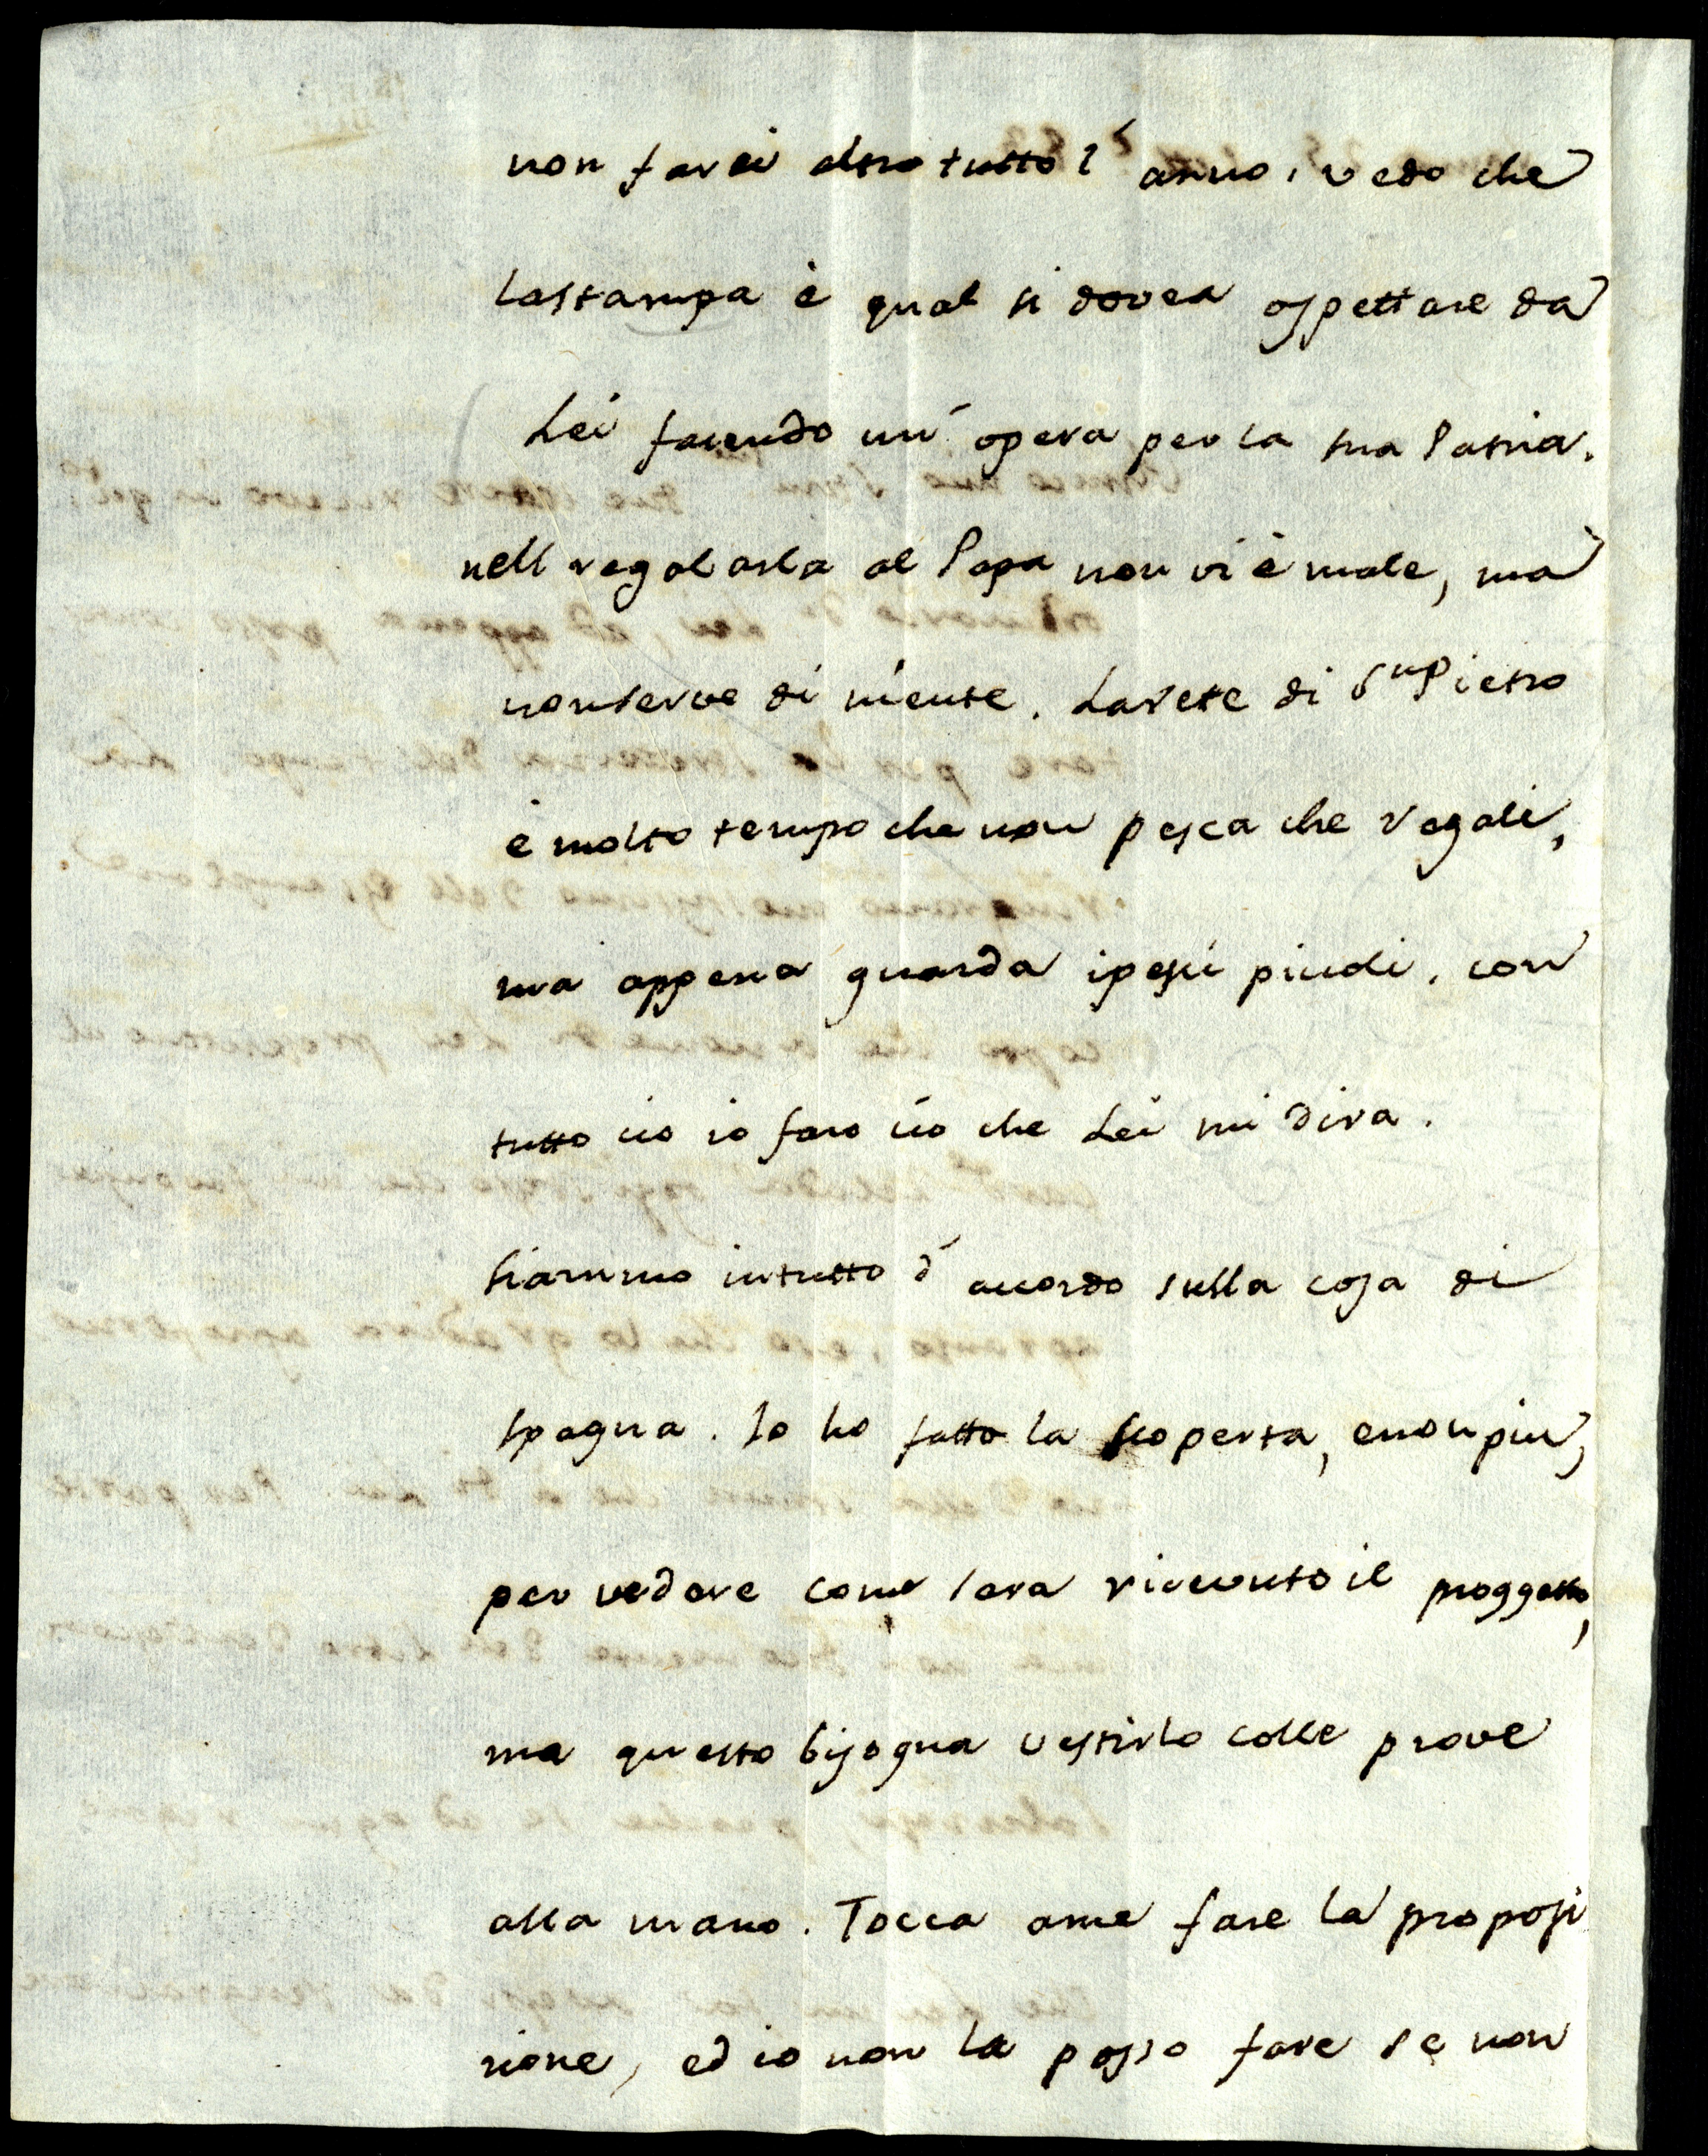 non farei altro tutto l'anno, vedo che
lastampa è qual si dovea aspettare da
Lei facendo un'opera per la sua Patria.
nell regalarla al Papa non vi è male, ma
nonserve di niente. Larete di Sn Pietro
è molto tempo che non pesca che regali,
ma appena guarda ipesci picoli. con
tutto cio io faro cio che Lei mi dira.
siammo intutto d'accordo sulla cosa di
spagna. Io ho fatto la scoperta, enonpiu,
per vedere come sara riceuuto il proggetto,
ma questo bisogna vestirlo colle prove
alla mano. Tocca ame fare la proposi
zione, ed io non la posso fare se non